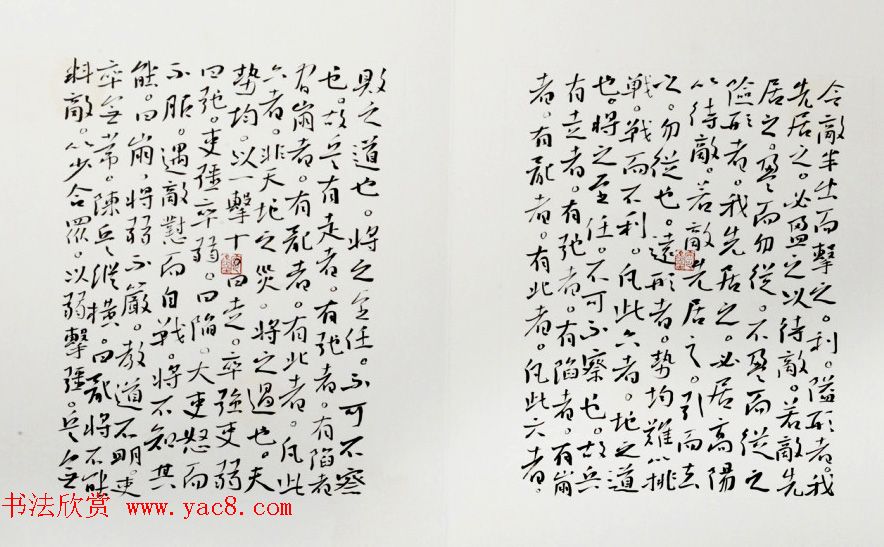 令敵半出而擊之。利。隘形者。我
先居之。必盈之以待敵。若敵先
居之。盈而勿從。不盈而從之
險形者。我先居之。必居高陽
以待敵。若敵先居之。引而去
之。勿從也。遠形者。勢均難以挑
戰。戰而不利。凡此六者。地之道
也。將之至任。不可不察也。故兵
有走者。有弛者。有陷者。有崩
者。有亂者。有北者。凡此六者。
敗之道也。將之至任。不可不察
也。故兵有走者。有弛者。有陷者
有崩者。有亂者。有北者。凡此
六者。非天地之災。將之過也。夫
勢均。以一擊十。曰走。卒強吏弱
曰弛。吏彊卒弱。曰陷。大吏怒而
不服。遇敵懟而自戰。將不知其
能。曰崩。將弱不嚴。教道不明。吏
卒無常。陳兵縱橫。曰亂。將不能
料敵。以少合眾。以弱擊彊。兵無
书法欣赏 www.yac8.com